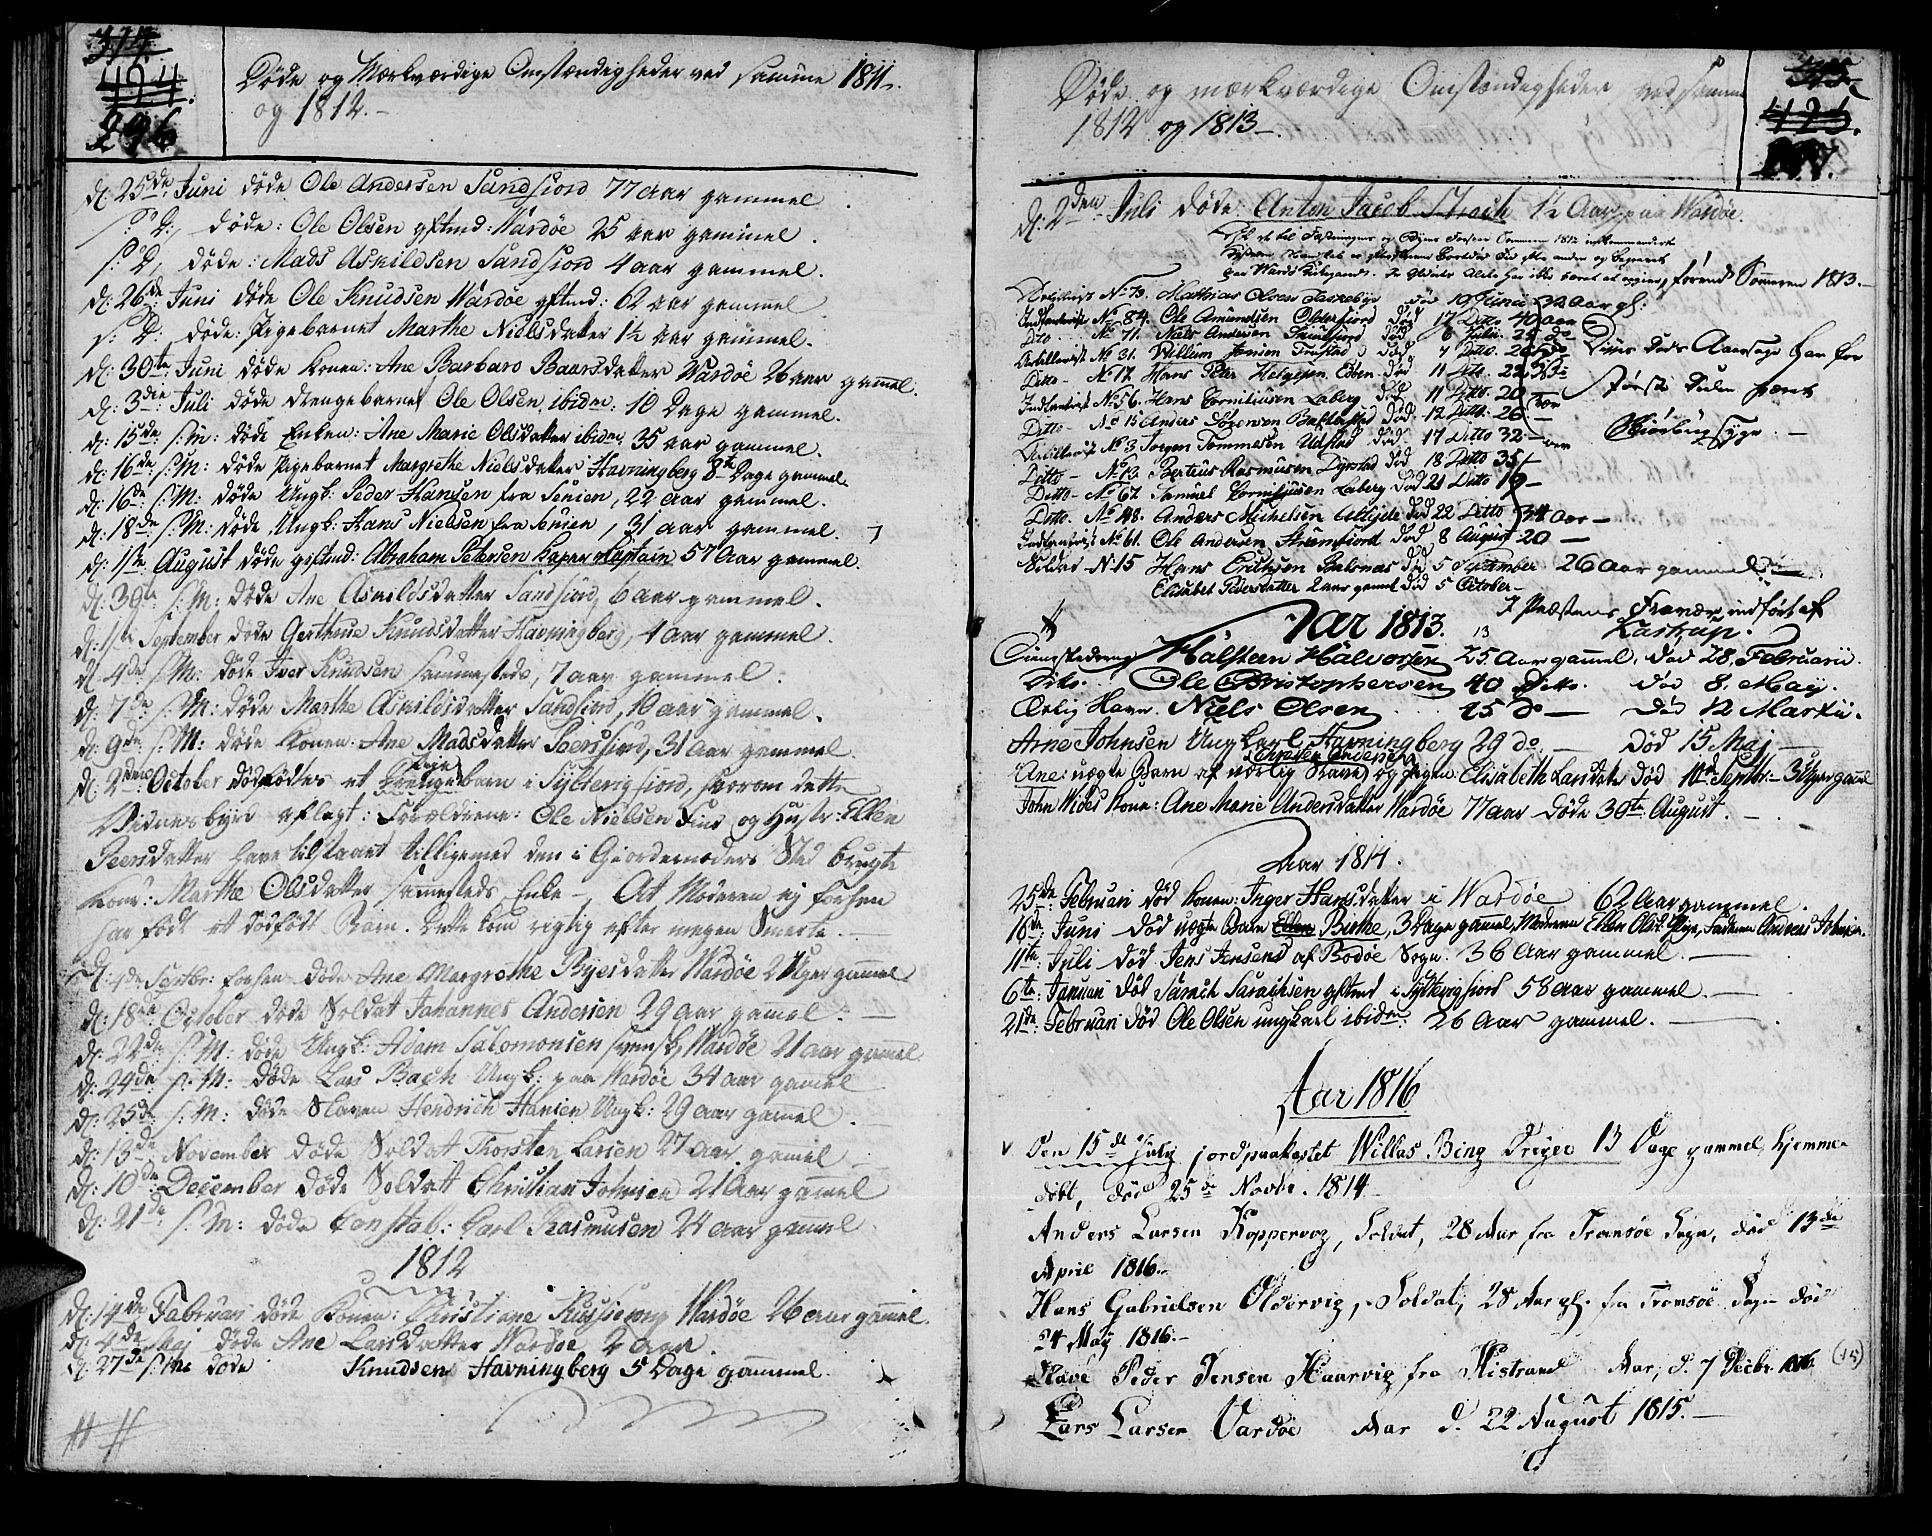 374
424.
296
Døde og Mærkværdige Omstændigheder ved samme 1811.
og 1812.-
d: 25de Juni døde Ole Andersen Sandfiord 77 aar gammel
s: D: døde: Ole Olsen gftmd: Wardøe 25 aar gammel.
s: D: døde: Mads Asnildsen Sandfiord 4 aar gammel.
d: 26de Juni døde Ole Knudsen Wardøe gftmd: 62 aar gammel
s: D: døde: Pigebarnet Marthe Nielsdatter 1½ aar gammel.
d: 30te Juni døde Konen: Ane Barbaro Baarsdatter Wardøe 26 aar gamel.
d: 3die Juli døde drengebarnet Ole Olsen ibidm: 10 Dage gammel.
d: 15de s: M: døde Enken: Ane Marie Olsdatter ibidm: 35 aar gammel.
d: 16de s: M: døde Pigebarnet Margrethe Nielsdatter Havningberg 8te Dage gammel
d: 16de s: M: døde Ungk: Peder Hansen fra Senien, 22 aar gammel.
d: 18de s: M: døde Ungk: Hans Nielsen fra Senien, 31 aar gammel.
d: 1ste August døde gftmd: Abraham Petersen Kaper Kaptain 57 aar gammel.
d: 30te s: M: døde Ane Asnildsdatter Sandfiord, 6 aar gammel.
d: 1ste September døde Gerthrue Knudsdatter Havningberg, 4 aar gammel.
d: 4de s: M: døde Iver Knudsen sammesteds, 7 aar gammel.
d: 7de s: M: døde Marthe Asnildsdatter Sandfiord, 10 aar gammel.
d: 9de s: M: døde Konen: Ane Madsdatter Persfiord, 31 aar gammel
d: 2den October dødfødtes et Pige drengebarn i Syltevigfiord, hvorom dette
Vidnesbyrd aflagt: Forældrene: Ole Nielsen Find og Hustr: Ellen
Peersdatter have tilstaaet tilligemed den i Giordemoders Sted brugte
Kone: Marthe Olsdatter sammesteds Enke -, At Moderen ej forhen
har født et dødfødt Barn. Dette kom rigtig efter megen Smerte.-
d: 1de Septbr: forhen døde Ane Margrethe Byesdatter Wardøe 2 Uger gammel
d: 18de October døde Soldat Johannes Andersen 29 aar gamel.-
d: 22de s: M: døde Ungk: Adam Salomonsen svensk, Wardøe 21 aar gammel
d: 24de s: M: døde Lars Bach Ungk: paa Wardøe 34 aar gamel
d: 25de s: M: døde Slaven Hendrich Hansen Ungk: 29 aar gammel.
d: 13de November døde Soldat Thorsten Larsen 27 aar gamel
d: 10de December døde Soldat Christian Johnsen 21 aar gammel
d: 21de s: M: døde Constab: Carl Rasmusen 24 aar gamel
1812
d: 14de Februari døde Konen: Christiane Wardøe 26 aar gammel.
d: 4de Maj døde Ane Larsdatter Wardøe 2 aar.
d: 27de s: Me døde Knudsen Havningberg 5 Dage gammel.
375
425.
297.
Døde og mærkværdige Omstændigheder ved samme
1812 og 1813.
d: 2den Juli døde Anton Jacob Stroch 1½ Aar paa Wardøe.
førend Sommeren 1813.
No 73. Mathias Olsen død 10 Junii 32 Aar gl:
Infanterist No 84. Ole Amundsen Olderfiord død 17 Ditto 40 aar
Dto. No 71. Niels Andersen død 6 Julii 29 do
Artillerist No 31. Willum Jensen død 7 Ditto 20
Ditto - No 17. Hans Peter Helgesen Eben død 11 Dito. 22
Infanterist No 56. Hans Corniliusen Laberg død 11 Ditto. 20
Ditto - No 15 Anders Sørensen død 12 Ditto: 26
Artillerist No 3. Jørgen Tommesen Udstad død 17 Ditto 32 -
Ditto - No 13. Bertius Rasmusen Dyrstad død 18 Ditto 35
Ditto - No 67. Samuel Corniliusen Laberg død 21 Dito 19 -
Ditto. No 48. Anders Michelsen død 22 Ditto 34 aar -
Infanterist No 61. Ole Andersen Strømfiord død 8 August 20 -
Soldat - N. 15 Hans Erichsen Balsnas død 5 September 26 Aar gammel
Elisabet Pedersdatter 2 aar gamel død 5 October -
Disse døds Aarsage har for
største Delen været
Skiørbug syge. -
I Præstens Fravær indført af
Kastrup.
Aar 1813.
Halsteen Halvorsen 25 Aar gammel. død 28. Februarii.
Ditto. Ole Christophersen 40 Ditto. død 8. Maij.
Ærlig Havn. Niels Olsen 15 do - død 12 Martii.
Arne Johnsen Ungkarl Havningberg 29 do. - død 15 Maj -
Ane: uægte Barn af uærlig Slave Christen Andersen og Pigen: Elisabeth Larsdatter død 10de Septbr - 3 Uger gamel
John Wides Kone: Ane Marie Andersdatter Wardøe 77 aar døde 30te August. -
Aar 1814.
25de Februari død Konen: Inger Hansdatter i Wardøe 62 Aar gammel.
16de Juni død uægte Barn Ellen Birthe, 3 Dage gamel, Moderen Ellen Olsd: Pige, Faderen Andreas Johnsen.
11te Juli død Jens Jensen af Bodøe Sogn. 36 Aar gammel. -
6te Januari død Sarach Sarachsen gftmd i Syltevigfiord 58 aar gammel. -
21de Februari død Ole Olsen ungkarl ibidm: 26 Aar gammel. -
Aar 1816
Den 15de July jordpaakastet Willas Bing Dreyer 13 Dage gammel, hjemme-
døbt, død 25de Novbr. 1814
Anders Larsen Koppervog, Soldat, 28 Aar fra Tromsøe Sogn, død 13de
April 1816.
Hans Gabrielsen Oldervig, Soldat, 28 Aar gl. fra Tromsøe Sogn død
24 May 1816.-
Slave Peder Jensen Haarvig fra Kistrand Aar, d. 7 Decbr. 1816 (15)
Lars Larsen Vardøe Aar d. 22 August 1815.-